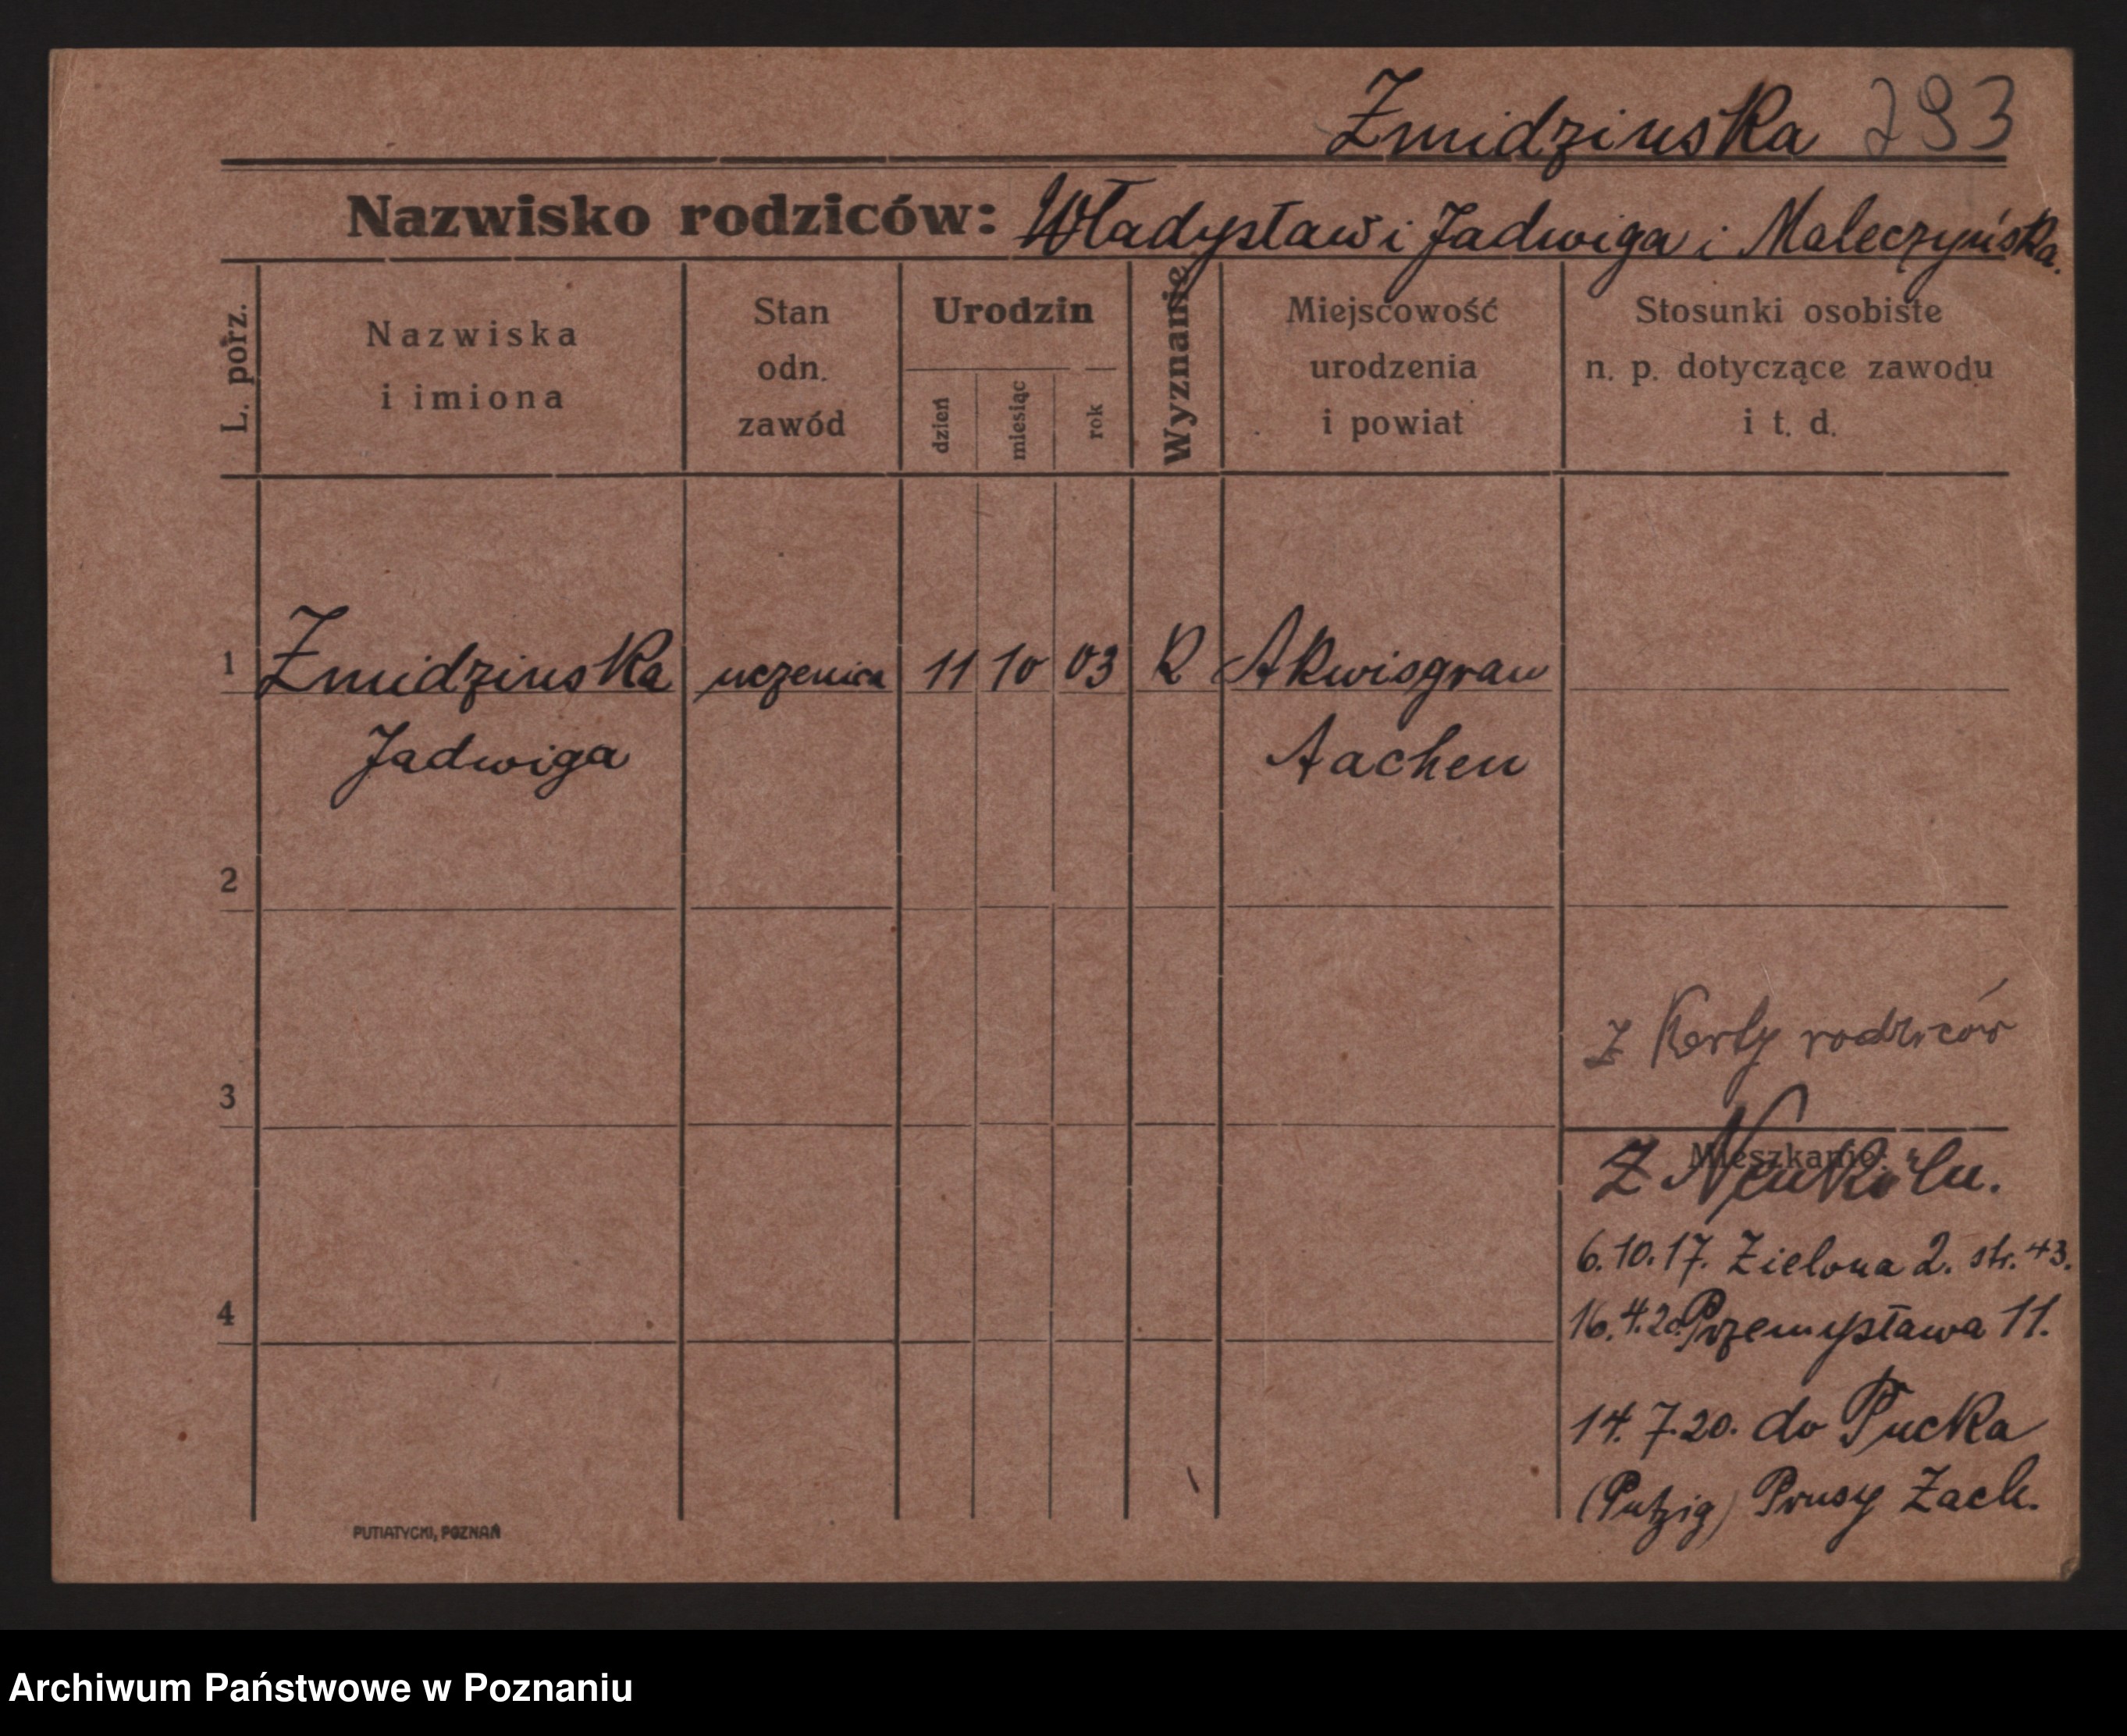 Żmidzinska 293
Nazwisko rodziców: Władysław i Jadwiga i Maleczyńska.
L. porz.
Nazwiska
i imiona
Stan
odn.
zawód
Urodzin
dzień
miesiąc
rok
Wyznanie
Miejscowość
urodzenia
i powiat
Stosunki osobiste
n. p. dotyczące zawodu
i t. d.
1 Żmidzinska uczenica 11 10 03 R Akwisgran
Jadwiga Aachen
2
3
z Karty rodziców
Mieszkanie:
Z Neukölln.
6.10.17. Zielona 2. str. 43.
4
16.4.20. Przemysława 11.
14.7.20. do Pucka
(Putzig) Prusy Zach.
PUTIATYCKI, POZNAŃ
Archiwum Państwowe w Poznaniu